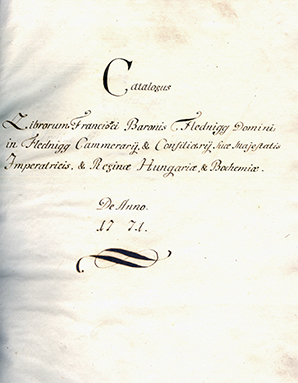 Catalogus
Librorum Francisci Baronis Flednigg Domini
in Flednigg Cammerarij, & Consiliarij Suæ Majestatis
Imperatricis, & Reginæ Hungariæ & Bohemiæ.
De Anno.
17 71.